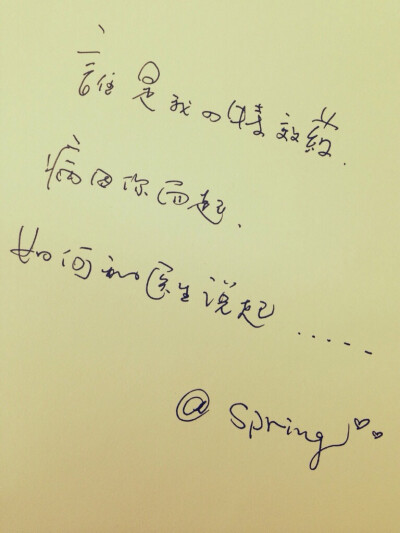 誰是我的特效药.
病因你而起.
如何和医生说起......
@ Spring